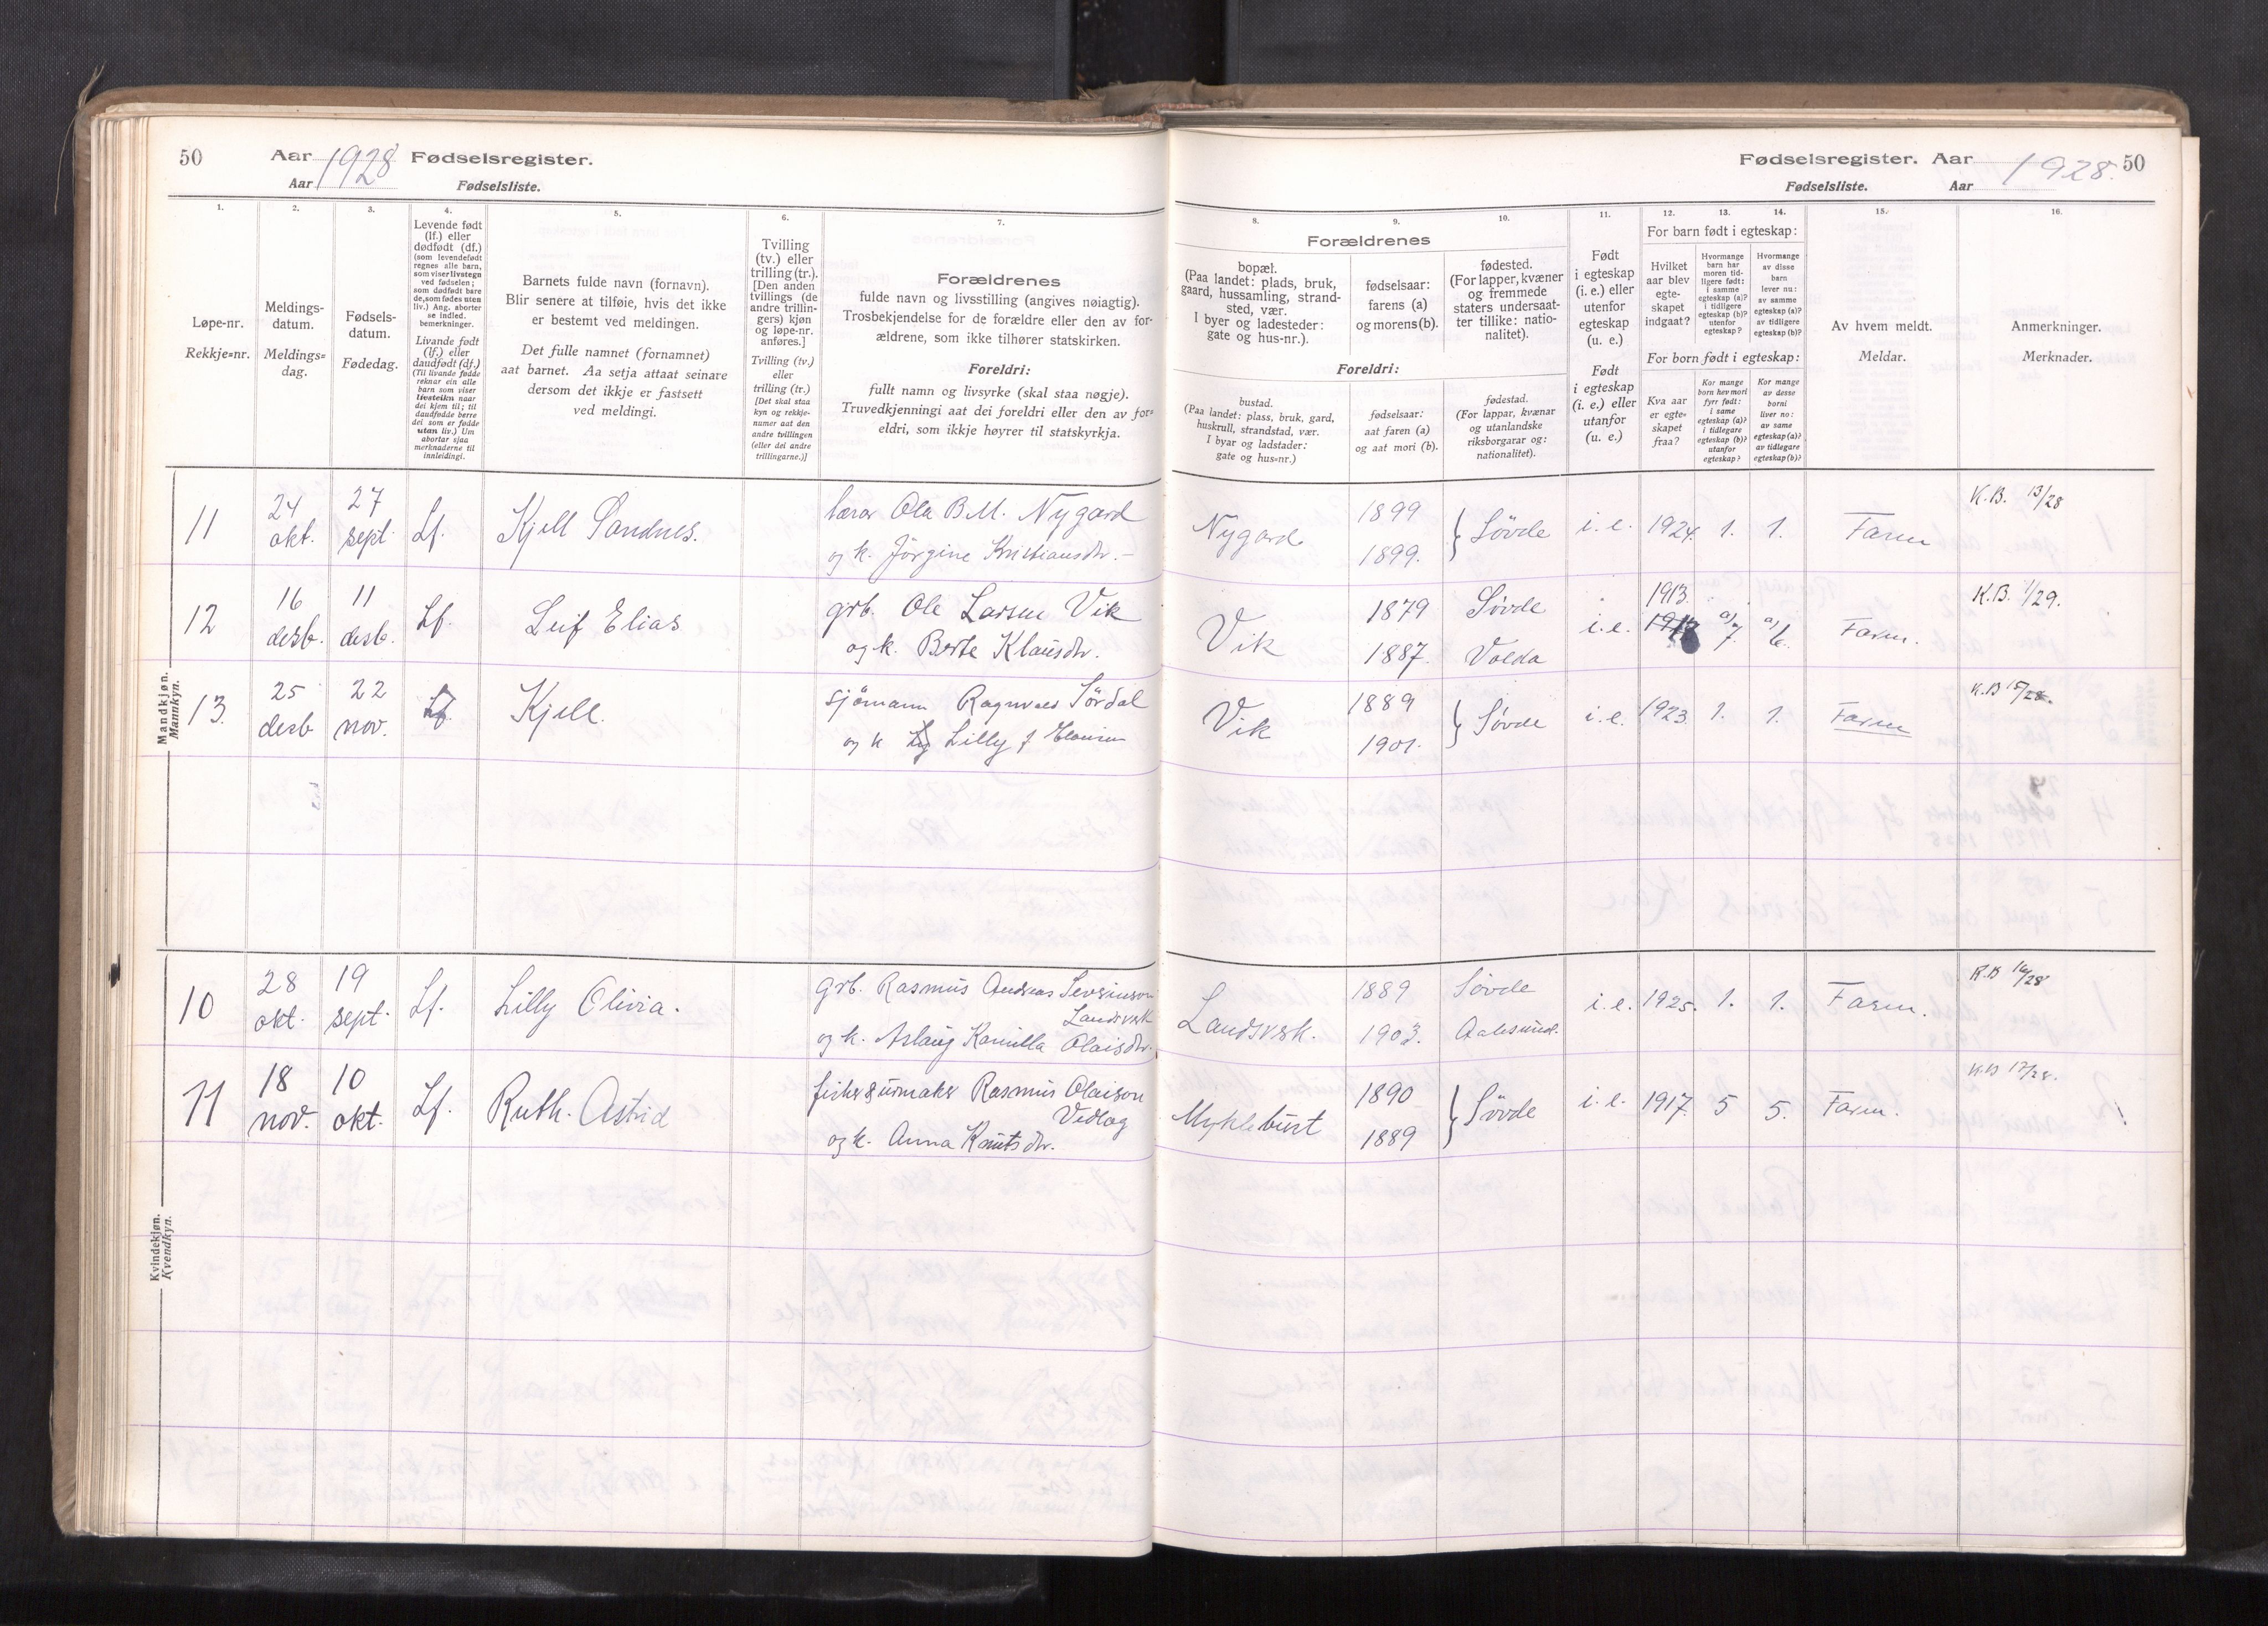 50 Aar 1928 Fødselsregister.
Aar Fødselsliste.
Fødselsregister. Aar 1928. 50
Fødselsliste. Aar
1.
Løpe-nr.
Rekkje=nr.
2.
Meldings-
datum.
Meldings=
dag.
3.
Fødsels-
datum.
Fødedag.
4.
Levende født
(lf.) eller
dødfødt (df.)
(som levendefødt
regnes alle barn,
som viser livstegn
ved fødselen;
som dødfødt bare
de, som fødes uten
liv.) Ang. aborter
se indled.
bemerkninger.
Livande født
(lf.) eller
daudfødt (df.)
(Til livande fødde
reknar ein alle
barn som viser
livsteikn naar
dei kjem til; til
daudfødde berre
dei som er fødde
utan liv.) Um
abortar sjaa
merknaderne til
innleidingi.
5.
Barnets fulde navn (fornavn).
Blir senere at tilføie, hvis det ikke
er bestemt ved meldingen.
Det fulle namnet (fornamnet)
aat barnet. Aa setja attaat seinare
dersom det ikkje er fastsett
ved meldingi.
6.
Tvilling
(tv.) eller
trilling (tr.).
[Den anden
tvillings (de
andre trillin-
gers) kjøn
og løpe-nr.
anføres.]
Tvilling (tv.)
eller
trilling (tr.)
[Det skal staa
kyn og rekkje-
numer aat den
andre tvillingen
(eller dei andre
trillingarne.)]
7.
Forældrenes
fulde navn og livsstilling (angives nøiagtig).
Trosbekjendelse for de forældre eller den av for-
ældrene, som ikke tilhører statskirken.
Foreldri:
fullt namn og livsyrke (skal staa nøgje).
Truvedkjenningi aat dei foreldri eller den av for=
eldri, som ikkje høyrer til statskyrkja.
8.
Forældrenes
bopæl.
(Paa landet: plads, bruk,
gaard, hussamling, strand-
sted, vær.
I byer og ladesteder:
gate og hus-nr.).
Foreldri:
bustad.
(Paa landet: plass, bruk, gard,
huskrull, strandstad, vær.
I byar og ladstader:
gate og hus=nr.)
9.
fødselsaar:
farens (a)
og morens (b).
fødselsaar:
aat faren (a)
og aat mori (b).
10.
fødested.
(For lapper, kvæner
og fremmede
staters undersaat-
ter tillike: natio-
nalitet).
fødestad.
(For lappar, kvænar
og utanlandske
riksborgarar og:
nationalitet).
11.
Født
i egteskap
(i. e.) eller
utenfor
egteskap
(u. e.)
Født
i egteskap
(i. e.) eller
utanfor
(u. e.)
12. 13. 14.
For barn født i egteskap:
Hvilket
aar blev
egte-
skapet
indgaat?
Hvormange
barn har
moren tid-
ligere født:
i samme
egteskap (a)?
i tidligere
egteskap (b)?
utenfor
egteskap?
Hvormange
av disse
barn
lever nu:
av samme
egteskap (a)?
av tidligere
egteskap (b)?
For born født i egteskap:
Kva aar
er egte-
skapet
fraa?
Kor mange
born hev mori
fyrr født:
i same
egteskap (a)?
i tidlegare
egteskap (b)?
utanfor
egteskap?
Kor mange
av desse
borni
liver no:
av same
egteskap (a)?
av tidlegare
egteskap (b)?
15.
Av hvem meldt.
Meldar.
16.
Anmerkninger.
Merknader.
Mandkjøn.
Mannkyn.
11 24 okt. 27 sept. Lf. Kjell Sandnes. lærar Ola B.M. Nygard
og k. Jørgine Kristiansdtr. Nygard 1899 1899. Søvde i.e. 1924. 1. 1. Faren K.B. 13/28
12 16 desb. 11 desb. Lf. Leif Elias grb. Ole Larsen Vik
og k. Berte Klausdtr. Vik 1879 1887. Søvde Volda i.e. 1913. a) 7. a) 6. Faren. K.B. 1/29.
13. 25 desb 22 nov. Lf. Kjell. sjömann Ragnvald Sørdal
og k Lilly f Clausen Vik 1889 1901. Søvde i.e. 1923. 1. 1. Faren K.B 15/28.
Kvindekjøn.
Kvendkyn.
10 28 okt. 19 sept. Lf. Lilly Olivia. grb. Rasmus Andreas Severinson
Landsverk
og k. Aslaug Kamilla Olaisdtr. Landsverk. 1889 1903. Søvde Aalesund. i.e. 1925. 1. 1. Faren. K.B 16/28
11 18 nov. 10 okt. Lf. Ruth. Astrid fisker & urmaker Rasmus Olaison
Vedlog
og k. Anna Knutsdtr. Myklebust 1890 1889 Søvde i.e. 1917. 5 5. Faren. K.B 17/28.